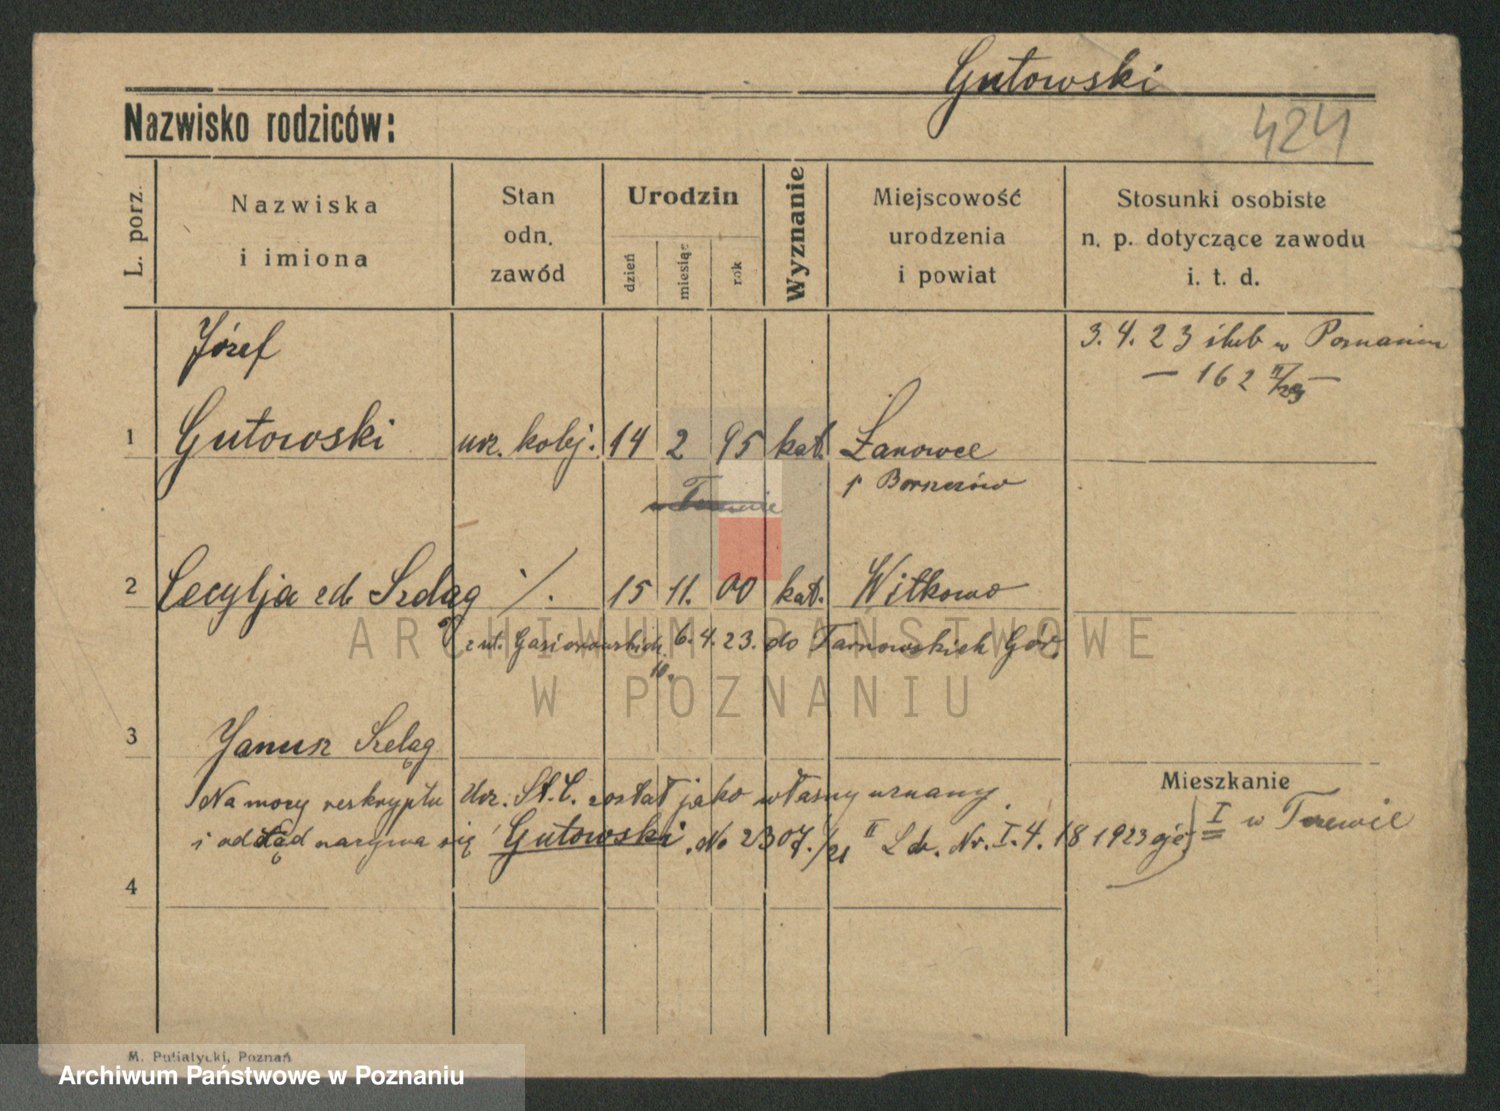 Gutowski
Nazwisko rodziców:
424
L. porz.
Nazwiska
i imiona
Stan
odn.
zawód
Urodzin
dzień
miesiąc
rok
Wyznanie
Miejscowość
urodzenia
i powiat
Stosunki osobiste
n. p. dotyczące zawodu
i. t. d.
Józef
3. 4. 23 ślub w Poznaniu
— 162 II/23 —
1 Gutowski urz. kolej. 14 2 95 kat. Łanowce
p Borszczów
2 Cecylja zd. Szeląg ·/. 15 11. 00 kat. Witkowo
z ul. Gąsiorowskich 6. 4. 23. do Tarnowskich Gór.
10.
ARCHIWUM PAŃSTWOWE
W POZNANIU
3 Janusz Szeląg
Mieszkanie
Na mocy reskryptu Urz. St. C. został jako własny uznany.
i odtąd nazywa się Gutowski. No 2307./21 II L. dz. Nr. I. 4. 18 1923 I w
4
M. Putiatycki, Poznań
Archiwum Państwowe w Poznaniu